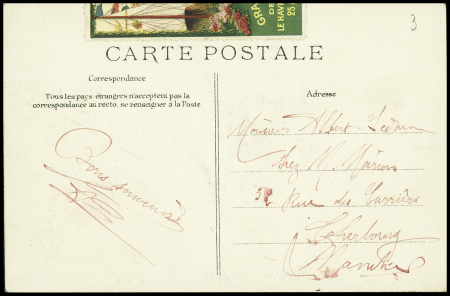 GRA
DE
LE HAV
25
3
CARTE POSTALE
Correspondance
Tous les pays étrangers n'acceptent pas la
correspondance au recto, se renseigner à la Poste
Adresse
Bons souvenirs
Monsieur Albert
chez M.
Rue des Carrières
Cherbourg
Manche